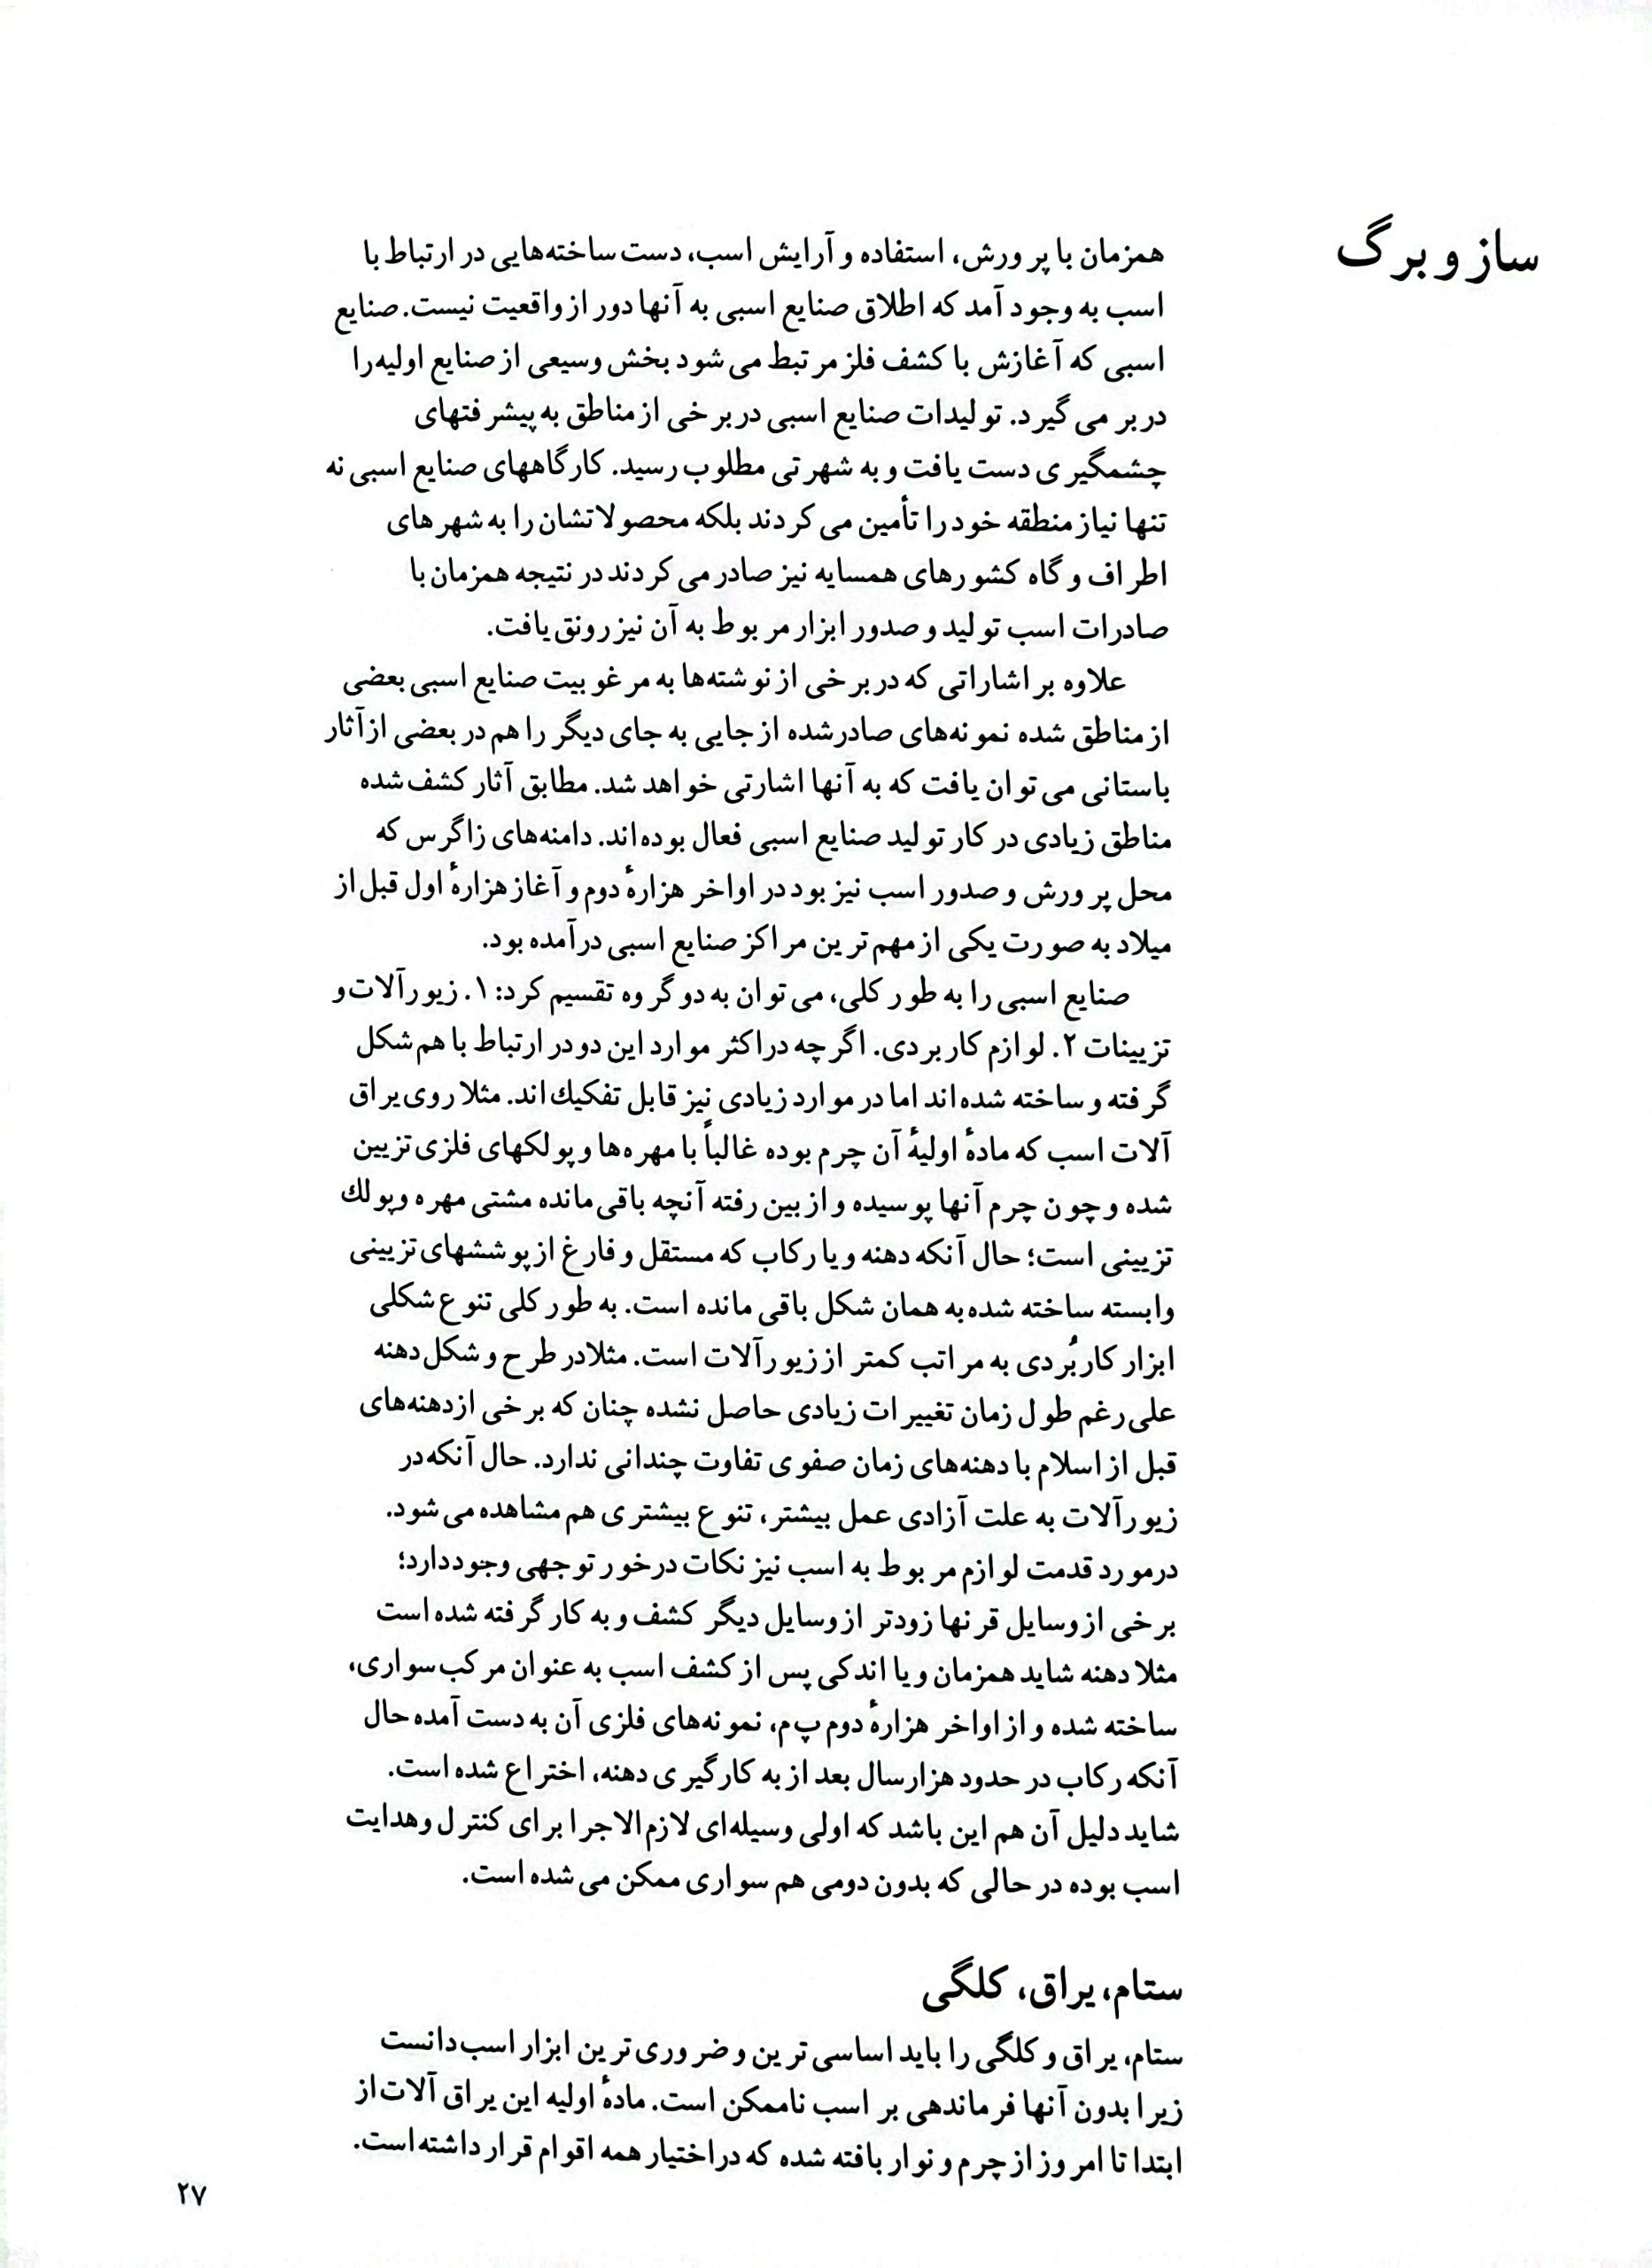 ساز و برگ
همزمان با پرورش، استفاده و آرایش اسب، دست‌ساخته‌هایی در ارتباط با
اسب به وجود آمد که اطلاق صنایع اسبی به آنها دور از واقعیت نیست. صنایع
اسبی که آغازش با کشف فلز مرتبط می‌شود بخش وسیعی از صنایع اولیه را
دربر می‌گیرد. تولیدات صنایع اسبی در برخی از مناطق به پیشرفتهای
چشمگیری دست یافت و به شهرتی مطلوب رسید. کارگاههای صنایع اسبی نه
تنها نیاز منطقه خود را تأمین می‌کردند بلکه محصولاتشان را به شهرهای
اطراف و گاه کشورهای همسایه نیز صادر می‌کردند در نتیجه همزمان با
صادرات اسب تولید و صدور ابزار مربوط به آن نیز رونق یافت.
علاوه بر اشاراتی که در برخی از نوشته‌ها به مرغوبیت صنایع اسبی بعضی
از مناطق شده نمونه‌های صادرشده از جایی به جای دیگر را هم در بعضی از آثار
باستانی می‌توان یافت که به آنها اشارتی خواهد شد. مطابق آثار کشف شده
مناطق زیادی در کار تولید صنایع اسبی فعال بوده‌اند. دامنه‌های زاگرس که
محل پرورش و صدور اسب نیز بود در اواخر هزارهٔ دوم و آغاز هزارهٔ اول قبل از
میلاد به صورت یکی از مهم‌ترین مراکز صنایع اسبی درآمده بود.
صنایع اسبی را به طور کلی، می‌توان به دو گروه تقسیم کرد: ۱. زیورآلات و
تزیینات ۲. لوازم کاربردی. اگرچه در اکثر موارد این دو در ارتباط با هم شکل
گرفته و ساخته شده‌اند اما در موارد زیادی نیز قابل تفکیك‌اند. مثلا روی یراق
آلات اسب که مادهٔ اولیهٔ آن چرم بوده غالباً با مهره‌ها و پولکهای فلزی تزیین
شده و چون چرم آنها پوسیده و از بین رفته آنچه باقی مانده مشتی مهره و پولك
تزیینی است؛ حال آنکه دهنه و یا رکاب که مستقل و فارغ از پوششهای تزیینی
وابسته ساخته شده به همان شکل باقی مانده است. به طور کلی تنوع شکلی
ابزار کاربُردی به مراتب کمتر از زیورآلات است. مثلا در طرح و شکل دهنه
علی‌رغم طول زمان تغییرات زیادی حاصل نشده چنان که برخی از دهنه‌های
قبل از اسلام با دهنه‌های زمان صفوی تفاوت چندانی ندارد. حال آنکه در
زیورآلات به علت آزادی عمل بیشتر، تنوع بیشتری هم مشاهده می‌شود.
درمورد قدمت لوازم مربوط به اسب نیز نکات درخور توجهی وجود دارد؛
برخی از وسایل قرنها زودتر از وسایل دیگر کشف و به کار گرفته شده است
مثلا دهنه شاید همزمان و یا اندکی پس از کشف اسب به عنوان مرکب سواری،
ساخته شده و از اواخر هزارهٔ دوم پ‌م، نمونه‌های فلزی آن به دست آمده حال
آنکه رکاب در حدود هزار سال بعد از به کارگیری دهنه، اختراع شده است.
شاید دلیل آن هم این باشد که اولی وسیله‌ای لازم‌الاجرا برای کنترل و هدایت
اسب بوده در حالی که بدون دومی هم سواری ممکن می‌شده است.
ستام، یراق، کلگی
ستام، یراق و کلگی را باید اساسی‌ترین و ضروری‌ترین ابزار اسب دانست
زیرا بدون آنها فرماندهی بر اسب ناممکن است. مادهٔ اولیه این یراق آلات از
ابتدا تا امروز از چرم و نوار بافته شده که در اختیار همه اقوام قرار داشته است.
۲۷